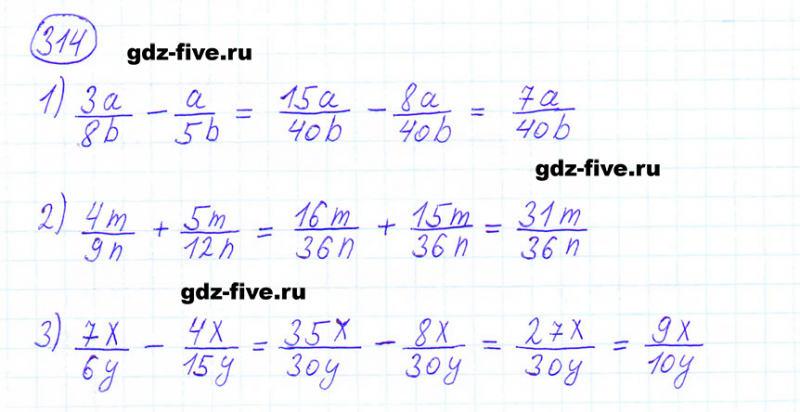 314
gdz-five.ru
1) 3a/8b - a/5b = 15a/40b - 8a/40b = 7a/40b
gdz-five.ru
2) 4m/9n + 5m/12n = 16m/36n + 15m/36n = 31m/36n
gdz-five.ru
3) 7x/6y - 4x/15y = 35x/30y - 8x/30y = 27x/30y = 9x/10y